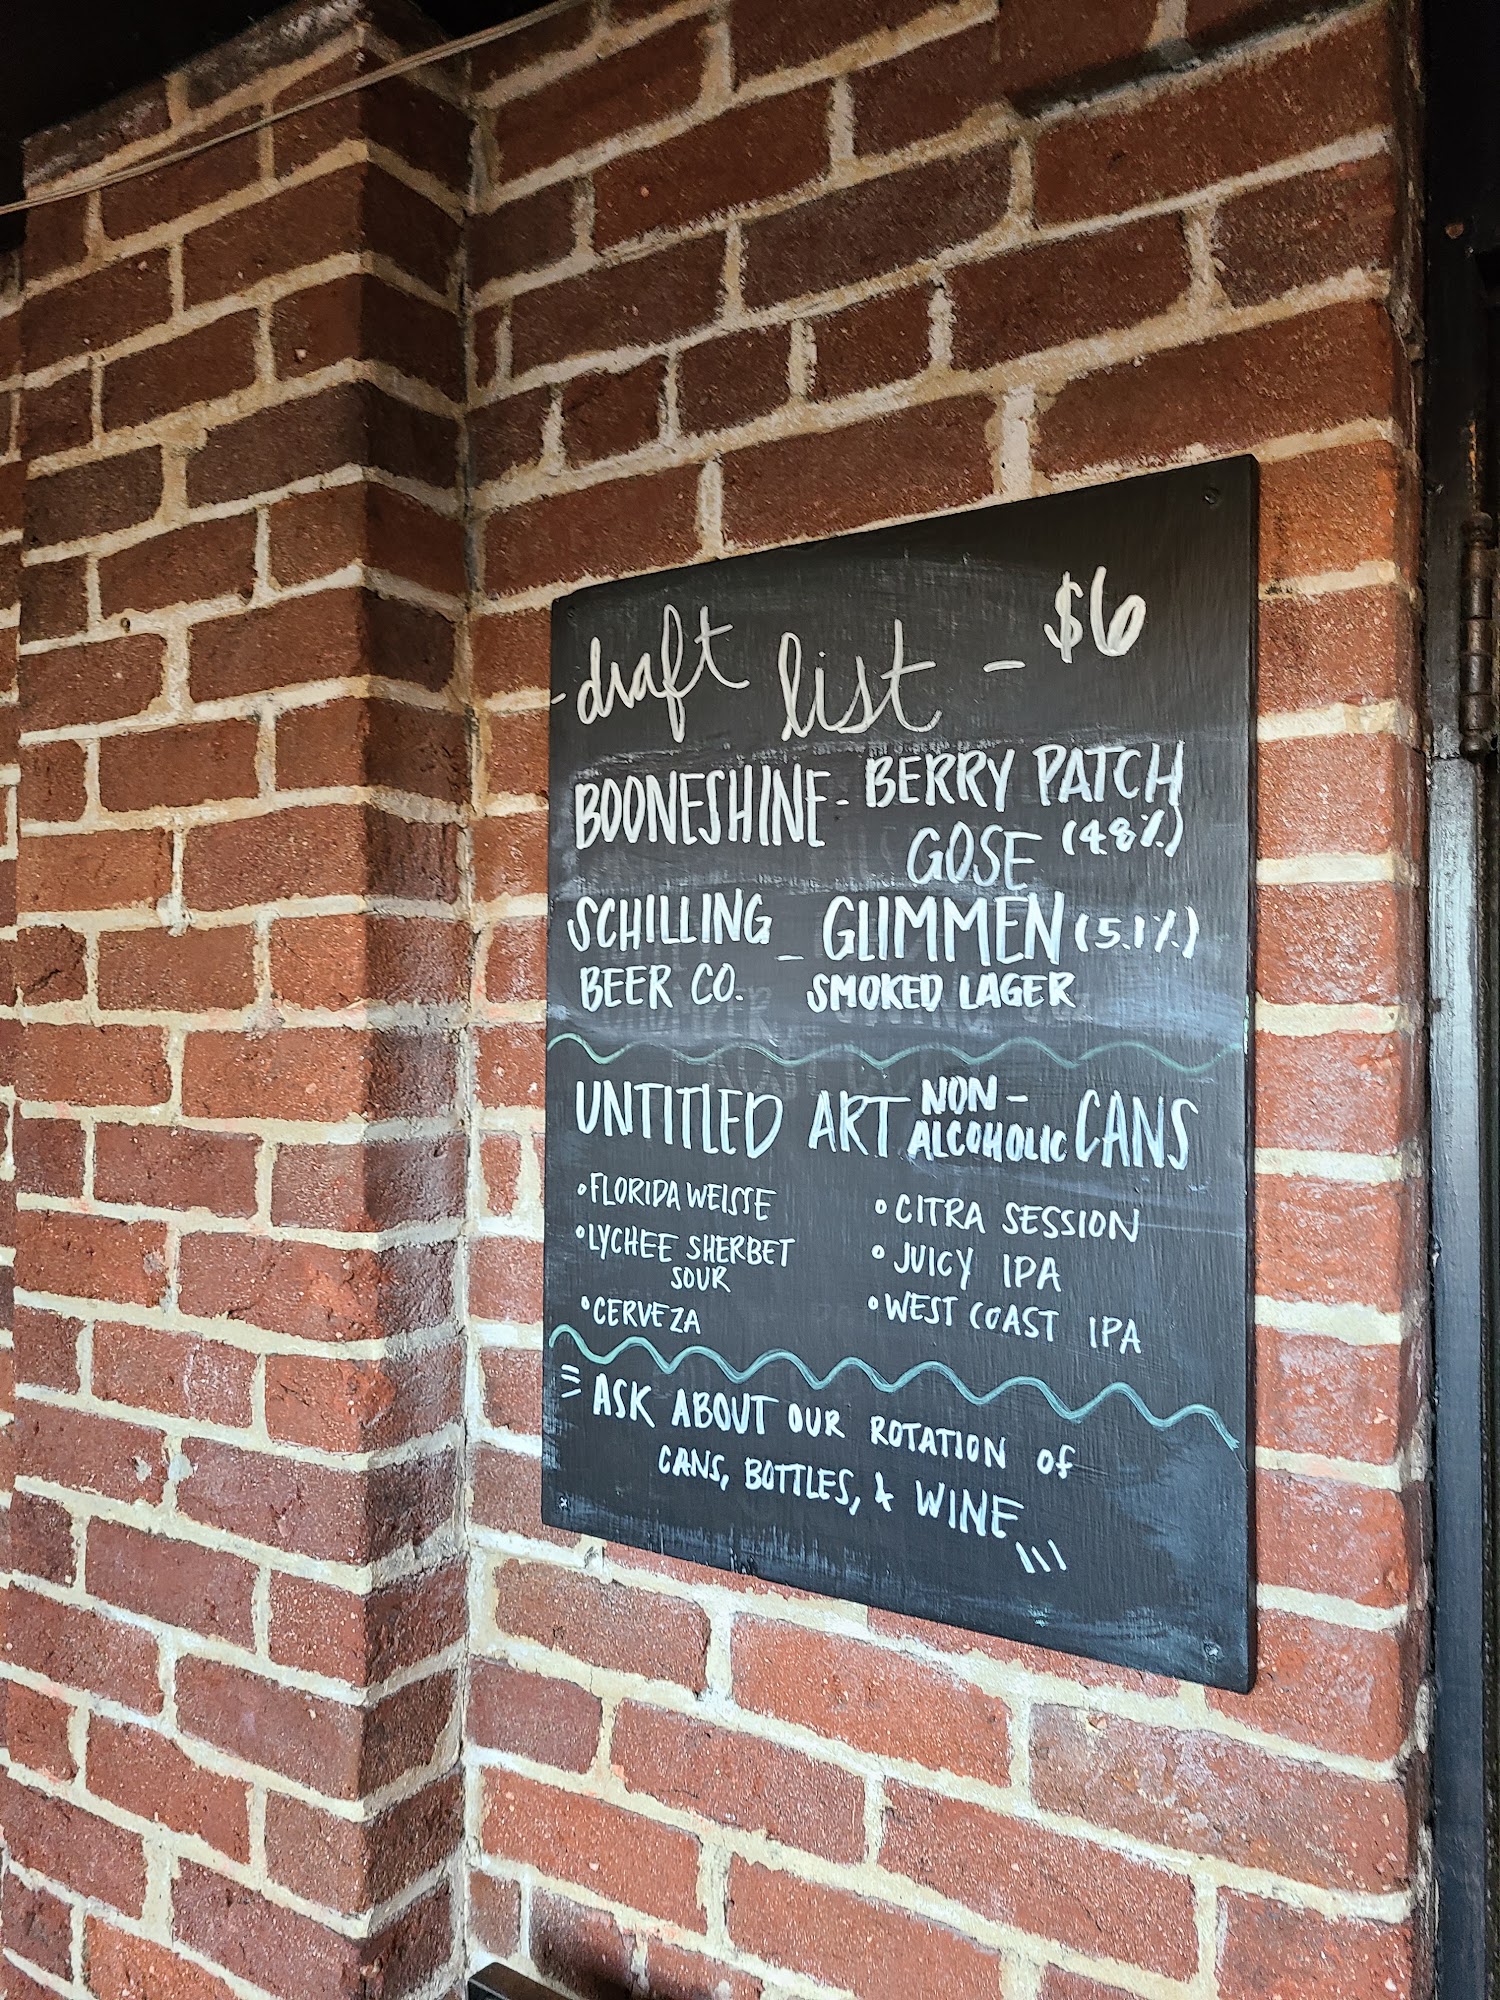 -draft list - $6
BOONESHINE - BERRY PATCH
GOSE (4.8%)
SCHILLING - GLIMMEN (5.1%)
BEER CO. SMOKED LAGER
UNTITLED ART NON-
ALCOHOLIC CANS
• FLORIDA WEISSE
• LYCHEE SHERBET
SOUR
• CERVEZA
• CITRA SESSION
• JUICY IPA
• WEST COAST IPA
ASK ABOUT OUR ROTATION of
CANS, BOTTLES, & WINE